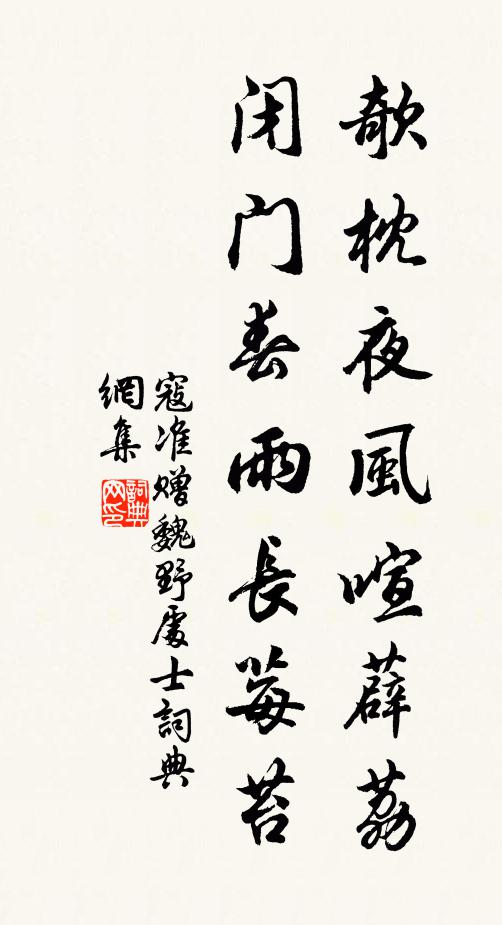 欹枕夜風喧薜荔
闭门春雨長莓苔
寇准赠魏野處士詞典
網集
詞典
网印